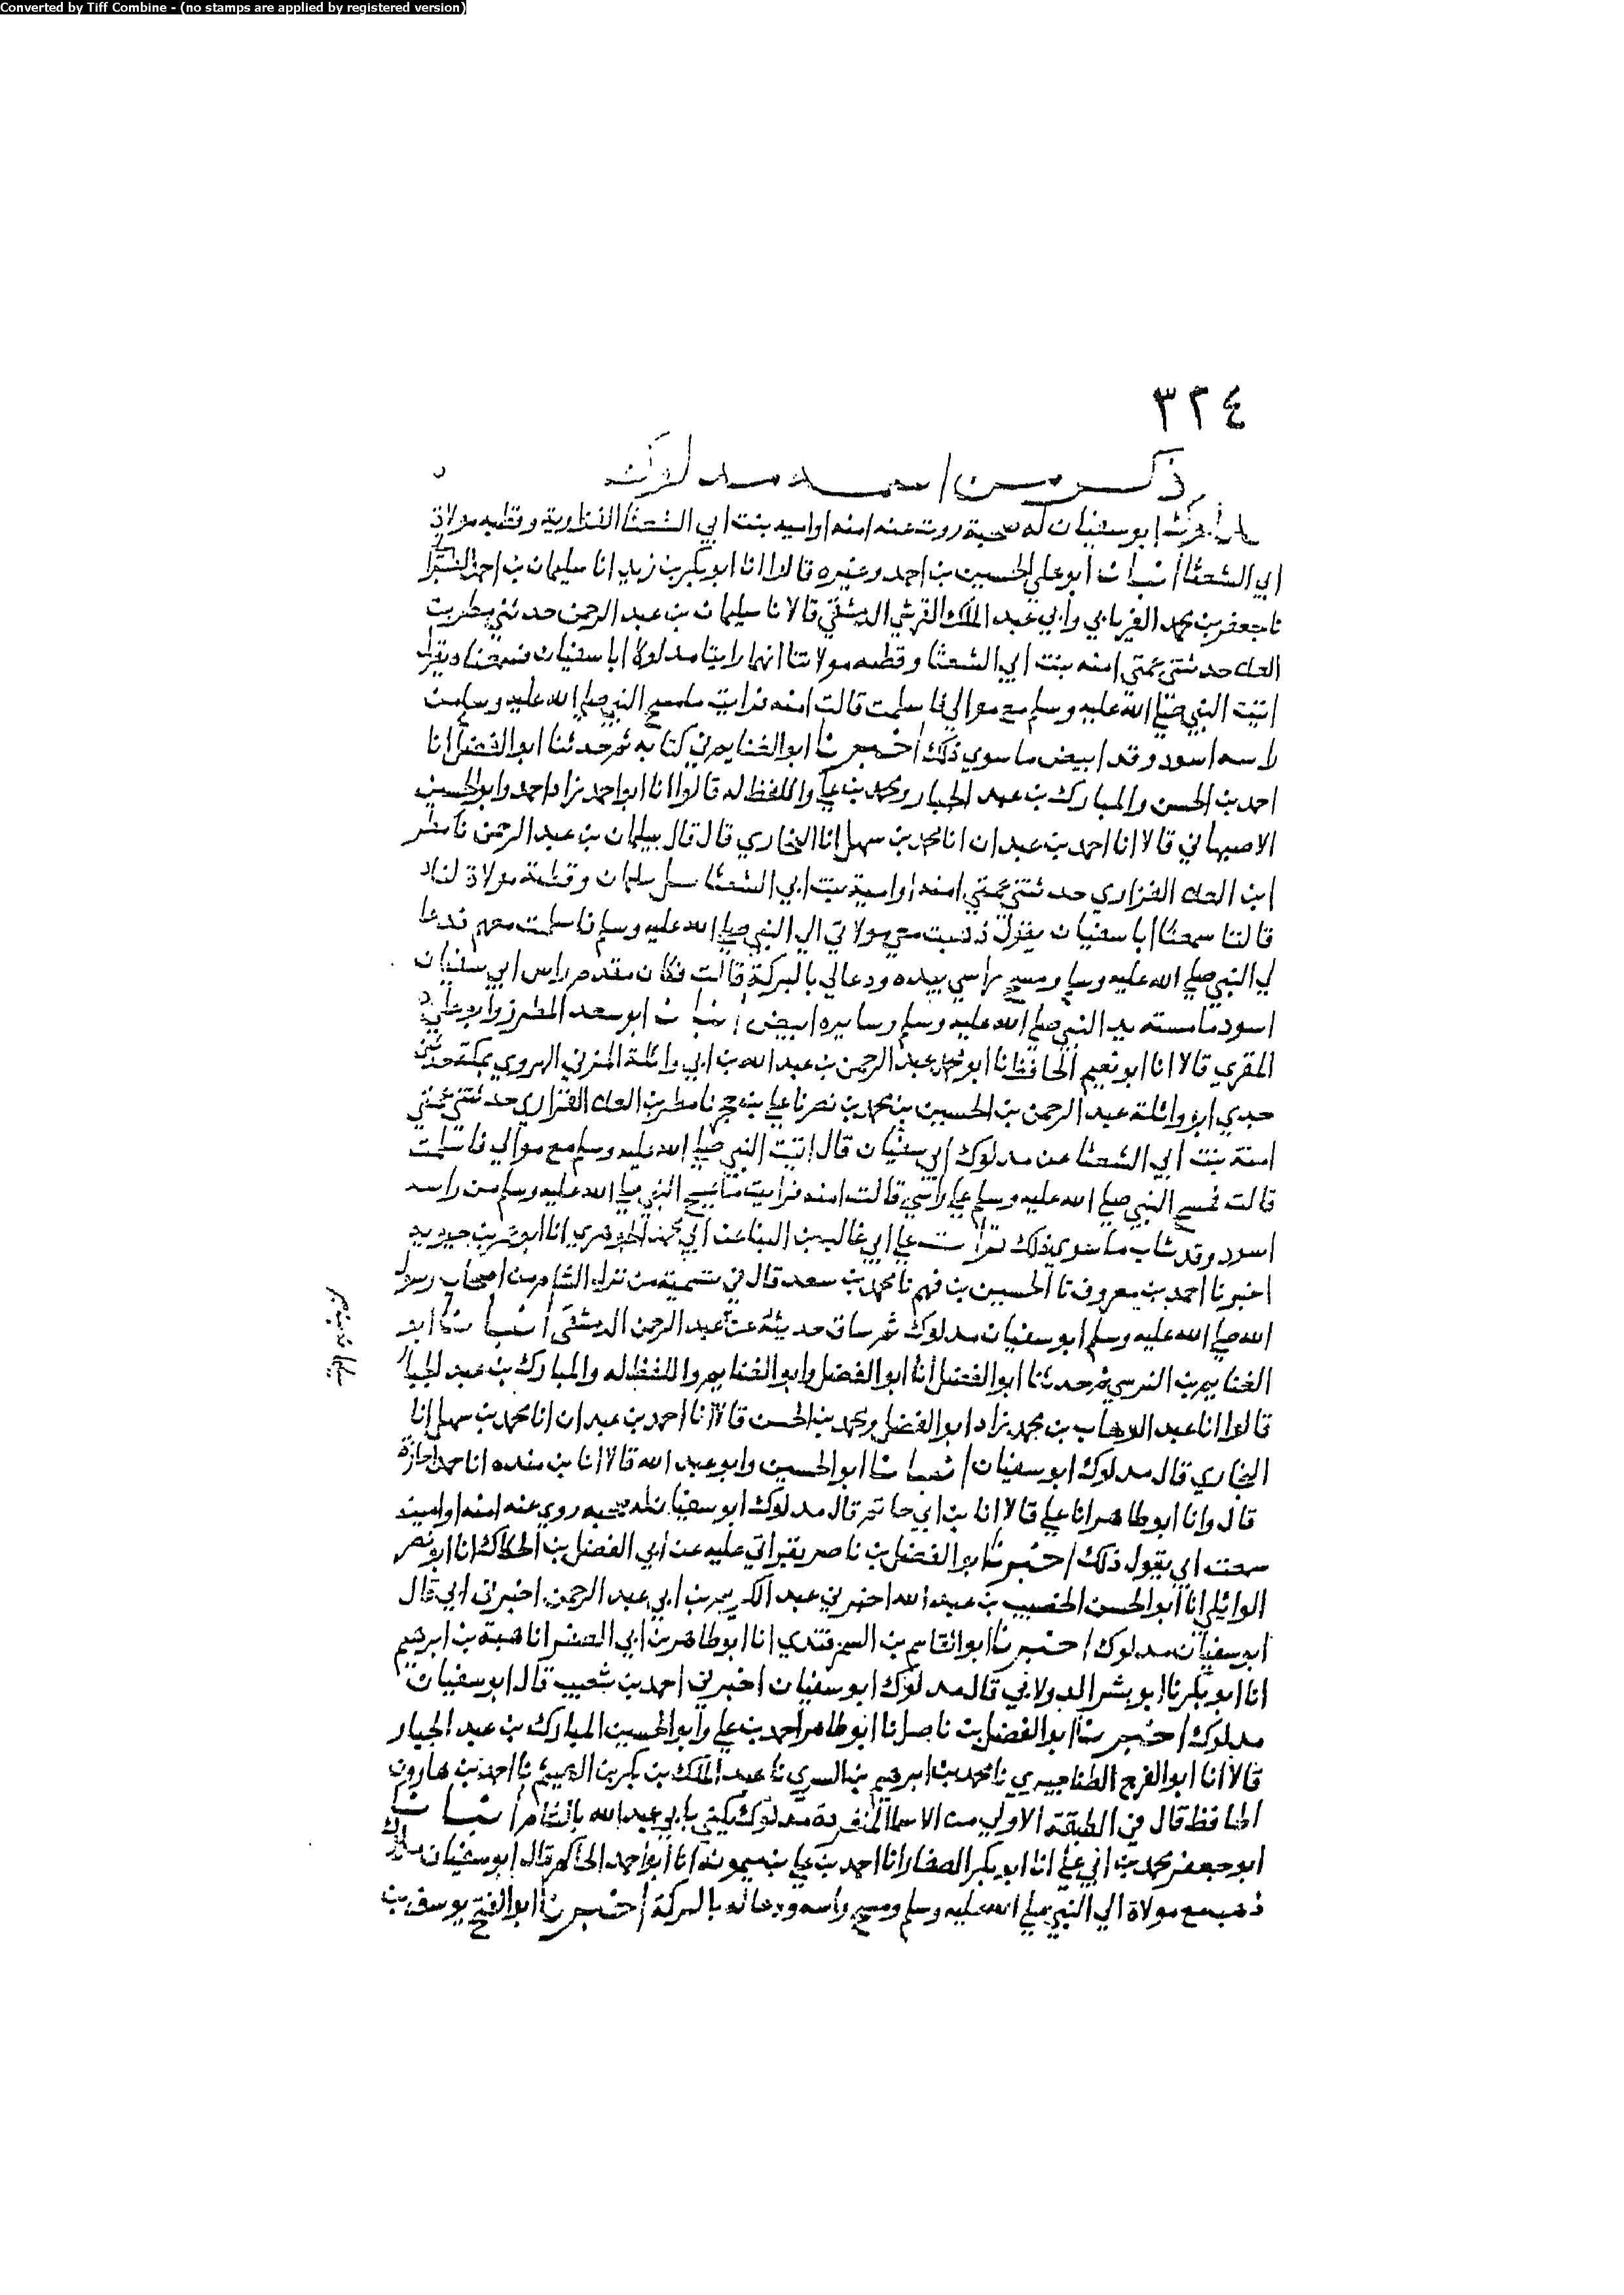 Converted by Tiff Combine - (no stamps are applied by registered version)
٣٢٤
ذكر من اسمه مدلوك
مدلوك ابو سفيان له صحبة روت عنه امنه او اسيه بنت ابي الشعثا الفزارية وقطبه مولاة
ابي الشعثا انبانا ابو علي الحسين بن احمد وغيره قالوا انا ابو بكر بن زيد انا سليمان بن احمد
نا جعفر بن محمد الفريابي وابي عبد الملك القرشي الدمشقي قالا نا سليمان بن عبد الرحمن حدثني مطر بن
العلا حدثتني عمتي امنه بنت ابي الشعثا وقطبه مولاتنا انهما راينا مدلوكا ابا سفيان فسمعناه يقول
اتيت النبي صلى الله عليه وسلم مع موالي فاسلمت قالت امنه فرايت ما مسح النبي صلى الله عليه وسلم من
راسه اسود وقد ابيض ما سوي ذلك اخبرنا ابو الغنايم في كتابه ثم حدثنا ابو الفضل انا
احمد بن الحسن والمبارك بن عبد الجبار ومحمد بن علي واللفظ له قالوا انا ابو احمد زاد احمد وابو الحسين
الاصبهاني قالا انا احمد بن عبدان انا محمد بن سهل انا البخاري قال قال سليمان بن عبد الرحمن نا مطر
ابن العلا الفزاري حدثتني عمتي امنه او اسية بنت ابي الشعثا وقطبة مولاة لنا
قالتا سمعنا ابا سفيان يقول ذهبت مع مولاتي الي النبي صلى الله عليه وسلم فاسلمت معهم فدعا
لي النبي صلى الله عليه وسلم ومسح راسي بيده ودعا لي بالبركة قالت فكان مقدم راس ابي سفيان
اسود ما مسته يد النبي صلى الله عليه وسلم وسايره ابيض انبانا ابو سعد المطرز وابو علي
المقري قالا انا ابو نعيم الحافظ نا ابو محمد عبد الرحمن بن عبد الله بن ابي وائلة المزني الهروي بمكة حدثني
جدي ابو وائلة عبد الرحمن بن الحسين بن محمد بن نصر نا علي بن حجر نا مطر بن العلا الفزاري حدثتني عمتي
امنة بنت ابي الشعثا عن مدلوك ابي سفيان قال اتيت النبي صلى الله عليه وسلم مع موالي فاسلمت
قالت فمسح النبي صلى الله عليه وسلم علي راسي قالت امنه فرايت ما مسح النبي صلى الله عليه وسلم من راسه
اسود وقد شاب ما سوي ذلك قرأت علي ابي غالب بن البنا عن ابي محمد الجوهري انا ابو عمر بن حيويه
اخبرنا احمد بن معروف نا الحسين بن فهم نا محمد بن سعد قال في تسمية من نزل الشام من اصحاب رسول
الله صلى الله عليه وسلم ابو سفيان مدلوك ثم ساق حديثه عن عبد الرحمن الدمشقي انبانا ابو
الغنايم بن النرسي ثم حدثنا ابو الفضل انا ابو الفضل وابو الغنايم واللفظ له والمبارك بن عبد الجبار
قالوا انا عبد الوهاب بن محمد زاد ابو الفضل ومحمد بن الحسن قالا انا احمد بن عبدان انا محمد بن سهل انا
البخاري قال مدلوك ابو سفيان انبانا ابو الحسين وابو عبد الله قالا انا بن منده انا حمد اجازة
قال وانا ابو طاهر انا علي قالا انا بن ابي حاتم قال مدلوك ابو سفيان له صحبه روي عنه امنه او امينه
سمعت ابي يقول ذلك اخبرنا ابو الفضل بن ناصر بقراتي عليه عن ابي الفضل بن الحكاك انا ابو نصر
الوايلي انا ابو الحسن الخصيب بن عبد الله اخبرني عبد الكريم بن ابي عبد الرحمن اخبرني ابي قال
ابو سفيان مدلوك اخبرنا ابو القاسم بن السمرقندي انا ابو طاهر بن ابي الصقر انا هبة بن ابرهيم
انا ابو بكر نا ابو بشر الدولابي قال مدلوك ابو سفيان اخبرني احمد بن شعيب قال ابو سفيان
مدلوك اخبرنا ابو الفضل بن ناصر انا ابو طاهر احمد بن علي وابو الحسين المبارك بن عبد الجبار
قالا انا ابو الفرج الطناجيري نا محمد بن ابرهيم بن السري نا عبد الملك بن بكر بن الهيثم نا احمد بن هارون
الحافظ قال في الطبقة الاولي من الاسما المنفردة مدلوك يكني بابي عبد الله بالشام انبانا
ابو جعفر محمد بن ابي علي انا ابو بكر الصفار انا احمد بن علي بن ميمونه انا ابو احمد الحاكم قال ابو سفيان مدلوك
ذهب مع مولاة الي النبي صلى الله عليه وسلم ومسح راسه ودعا له بالبركة اخبرنا ابو الفتح يوسف بن